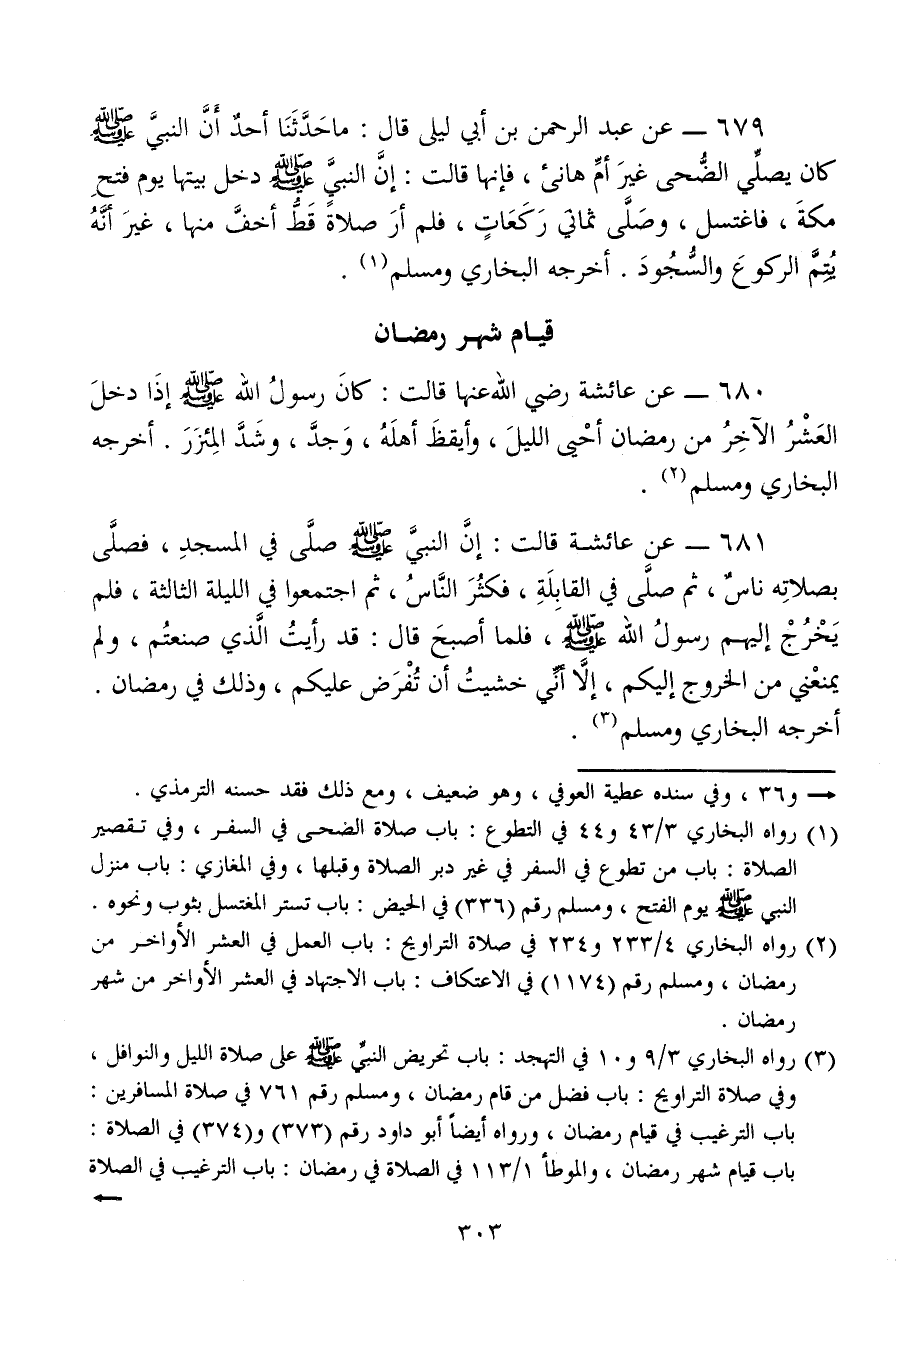 ٦٧٩ ــ عن عبد الرحمن بن أبي ليلى قال : ماحَدَّثَنَا أحدٌ أَنَّ النبيَّ ﷺ
كان يصلِّي الضُّحى غيرَ أمِّ هانئ ، فإنها قالت : إنَّ النبيَّ ﷺ دخل بيتها يوم فتحِ
مكةَ ، فاغتسل ، وصَلَّى ثمانيَ رَكَعَاتٍ ، فلم أرَ صلاةً قَطُّ أخفَّ منها ، غيرَ أنَّهُ
يُتِمَّ الركوعَ والسُّجُودَ . أخرجه البخاري ومسلم(١) .
قيام شهر رمضان
٦٨٠ ــ عن عائشة رضي الله عنها قالت : كانَ رسولُ الله ﷺ إذَا دخلَ
العَشْرُ الآخِرُ من رمضان أحْيى الليلَ ، وأيقظَ أهلَهُ ، وَجدَّ ، وشَدَّ المِئزَرَ . أخرجه
البخاري ومسلم(٢) .
٦٨١ ــ عن عائشة قالت : إنَّ النبيَّ ﷺ صلَّى في المسجدِ ، فصلَّى
بصلاتِه ناسٌ ، ثم صلَّى في القابِلَةِ ، فكثُرَ النَّاسُ ، ثم اجتمعوا في الليلة الثالثة ، فلم
يَخْرُجْ إليهم رسولُ الله ﷺ ، فلما أصبحَ قال : قد رأيتُ الَّذي صنعتُم ، ولم
يمنعْني من الخروج إليكم ، إلَّا أنِّي خشيتُ أن تُفْرَض عليكم ، وذلك في رمضان .
أخرجه البخاري ومسلم(٣) .
← و٣٦ ، وفي سنده عطية العوفي ، وهو ضعيف ، ومع ذلك فقد حسنه الترمذي .
(١) رواه البخاري ٤٣/٣ و٤٤ في التطوع : باب صلاة الضحى في السفر ، وفي تقصير
الصلاة : باب من تطوع في السفر في غير دبر الصلاة وقبلها ، وفي المغازي : باب منزل
النبي ﷺ يوم الفتح ، ومسلم رقم (٣٣٦) في الحيض : باب تستر المغتسل بثوب ونحوه .
(٢) رواه البخاري ٢٣٣/٤ و٢٣٤ في صلاة التراويح : باب العمل في العشر الأواخر من
رمضان ، ومسلم رقم (١١٧٤) في الاعتكاف : باب الاجتهاد في العشر الأواخر من شهر
رمضان .
(٣) رواه البخاري ٩/٣ و١٠ في التهجد : باب تحريض النبيِّ ﷺ على صلاة الليل والنوافل ،
وفي صلاة التراويح : باب فضل من قام رمضان ، ومسلم رقم ٧٦١ في صلاة المسافرين :
باب الترغيب في قيام رمضان ، ورواه أيضاً أبو داود رقم (٣٧٣) و(٣٧٤) في الصلاة :
باب قيام شهر رمضان ، والموطأ ١١٣/١ في الصلاة في رمضان : باب الترغيب في الصلاة
←
٣٠٣